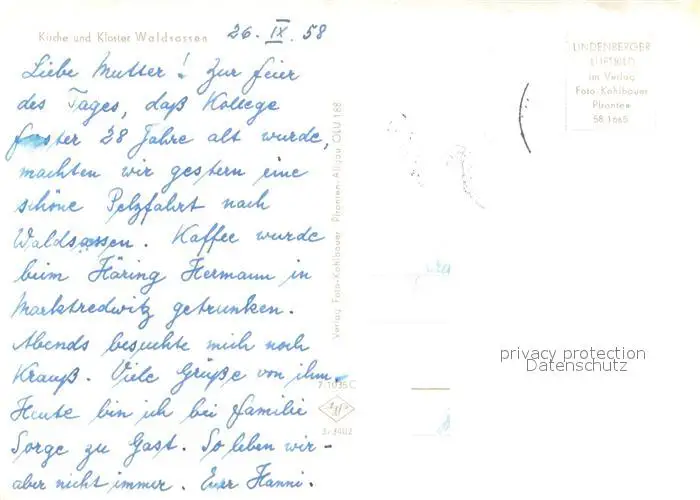 Kirche und Kloster Waldsassen
26. IX. 58
Liebe Mutter! Zur Feier
des Tages, daß Kollege
28 Jahre alt wurde,
machten wir gestern eine
schöne Pelzfahrt nach
Waldsassen. Kaffee wurde
beim Häring Hermann in
Marktredwitz getrunken.
Abends besuchte mich noch
Krauß. Viele Grüße von ihm.
Heute bin ich bei Familie
Sorge zu Gast. So leben wir -
aber nicht immer. Euer Hanni.
Verlag Foto-Kohlbauer Pfronten-Allgäu OLU 168
LINDENBERGER
LUFTBILD
im Verlag
Foto-Kohlbauer
Pfronten
privacy protection
Datenschutz